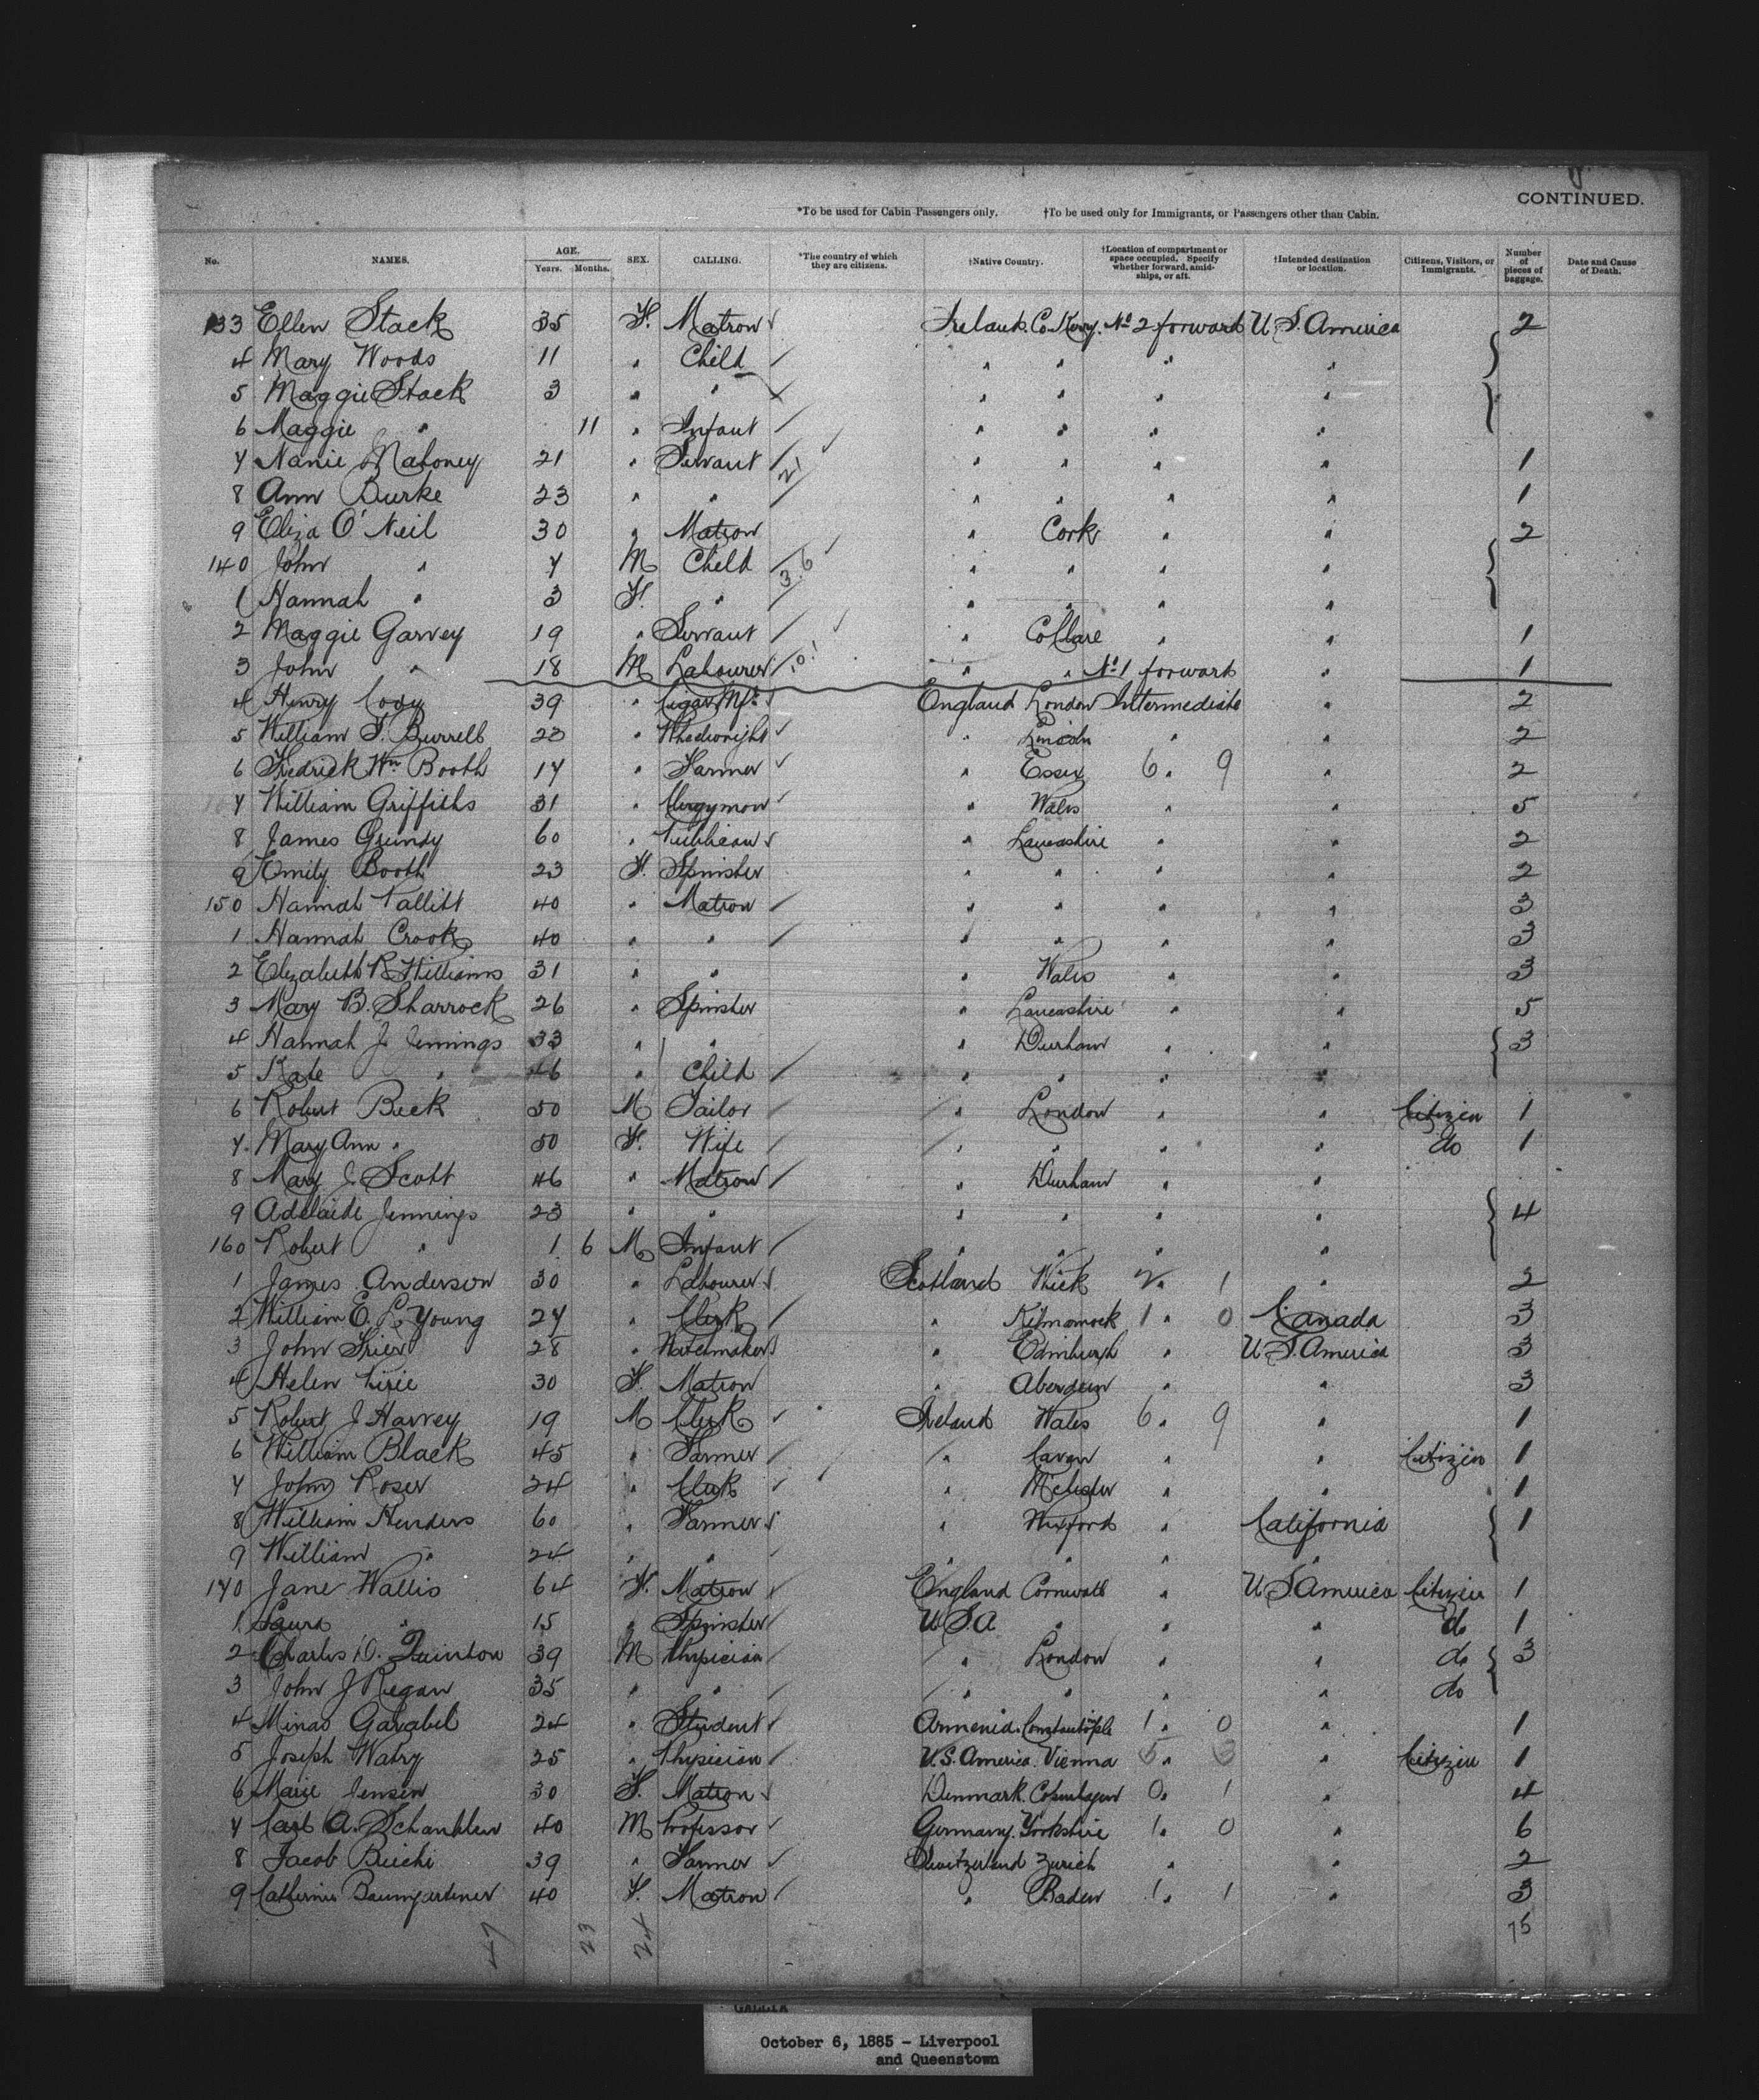 CONTINUED.
*To be used for Cabin Passengers only. †To be used only for Immigrants, or Passengers other than Cabin.
No. NAMES. AGE. Years. Months. SEX. CALLING. *The country of which they are citizens. †Native Country. †Location of compartment or space occupied. Specify whether forward, amidships, or aft. †Intended destination or location. Citizens, Visitors, or Immigrants. Number of pieces of baggage. Date and Cause of Death.
133 Ellen Stack 35 F. Matron Ireland. Co. Kerry. No 2 forward U.S. America 2
4 Mary Woods 11 " Child " " " "
5 Maggie Stack 3 " " " " " "
6 Maggie " 11 " Infant " " " "
7 Nanie Mahoney 21 " Servant 21 " " " " 1
8 Ann Burke 23 " " " " " " 1
9 Eliza O'Neil 30 " Matron " Cork " " 2
140 John " 7 M Child 3.6 " " " "
1 Hannah " 3 F. " " " " "
2 Maggie Garvey 19 " Servant " Co Clare " " 1
3 John " 18 M Labourer 10.1 " " No 1 forward " 1
4 Henry Cody 39 " Cigar Mfr England London Intermediate " 2
5 William S. Burrell 23 " Wheelwright " Lincoln " " 2
6 Fredrick Wm Booth 17 " Farmer " Essex 6 " 9 " 2
7 William Griffiths 31 " Clergyman " Wales " " 5
8 James Grundy 60 " Publican " Lancashire " " 2
9 Emily Booth 23 F. Spinster " " " " 2
150 Hannah Tallitt 40 " Matron " " " " 3
1 Hannah Crook 40 " " " " " " 3
2 Elizabeth R. Williams 31 " " " Wales " " 3
3 Mary B. Sharrock 26 " Spinster " Lancashire " " 5
4 Hannah J. Jennings 33 " " " Durham " " 3
5 Kate " " Child " " " "
6 Robert Beck 50 M Tailor " London " " Citizen 1
7 Mary Ann " 50 F. Wife " " " " do 1
8 Mary J. Scott 46 " Matron " Durham " "
9 Adelaide Jennings 23 " " " " " " 4
160 Robert " 1 6 M Infant " " " "
1 James Anderson 30 " Labourer Scotland Wick 2 " 1 " 2
2 William E. L. Young 27 " Clerk " Kilmarnock 1 " 0 Canada 3
3 John Grier 28 " Watchmaker " Edinburgh " U.S. America 3
4 Helen Pirie 30 F. Matron " Aberdeen " " 3
5 Robert J Harvey 19 M Clerk Ireland Wales 6 " 9 " 1
6 William Black 45 " Farmer " Cavan " " Citizen 1
7 John Roser 24 " Clerk " " " 1
8 William 60 " Farmer " Wexford " California 1
9 William " 24 " " " " " "
170 Jane Wallis 64 F. Matron England Cornwall " U.S. America Citizen 1
1 Laura " 15 " Spinster U.S.A " " " do 1
2 Charles D. Quinton 39 M Physician " London " " do 3
3 John J Regan 35 " " " " " " do
4 Minas Garabel 24 " Student Armenia. Constantople 1 " 0 " 1
5 Joseph Watry 25 " Physician U.S. America. Vienna 5 " " Citizen 1
6 Marie Jensen 30 F. Matron Denmark. Copenhagen 0 " 1 " 4
7 Carl A. 40 M Professor Germany. Yorkshire 1 " 0 " 6
8 Jacob Buchi 39 " Farmer Switzerland Zurich " " 2
9 Catherine Baumgartener 40 F. Matron " Baden 1 " 1 " 3
47 23 24 75
GALLIA
October 6, 1885 - Liverpool
and Queenstown